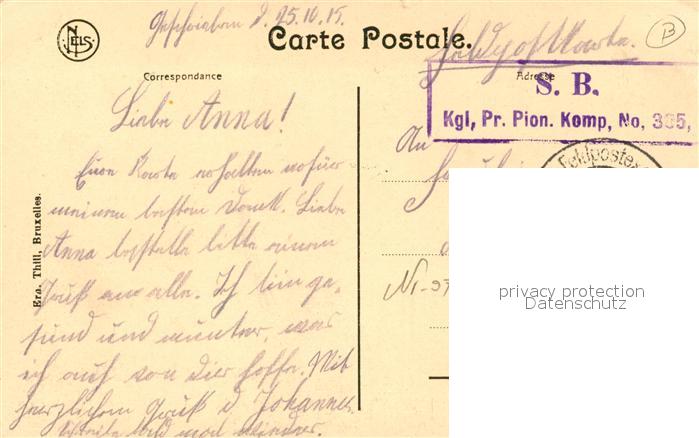 NELS
Geschrieben d. 25.10.15.
Carte Postale.
Feldpostkarte.
B
Correspondance
Adresse
S. B.
Kgl, Pr. Pion. Komp, No, 335,
Feldpostex
Liebe Anna!
An
Eure Karte erhalten wofür
meinen besten Dank. Liebe
Anna bestelle bitte einen
Gruß an alle. Ich bin ge-
sund und munter, was
ich auch von Dir hoffe. Mit
herzlichem Gruß d. Johannes.
Schreibe bald mal wieder.
Ern. Thill, Bruxelles.
privacy protection
Datenschutz